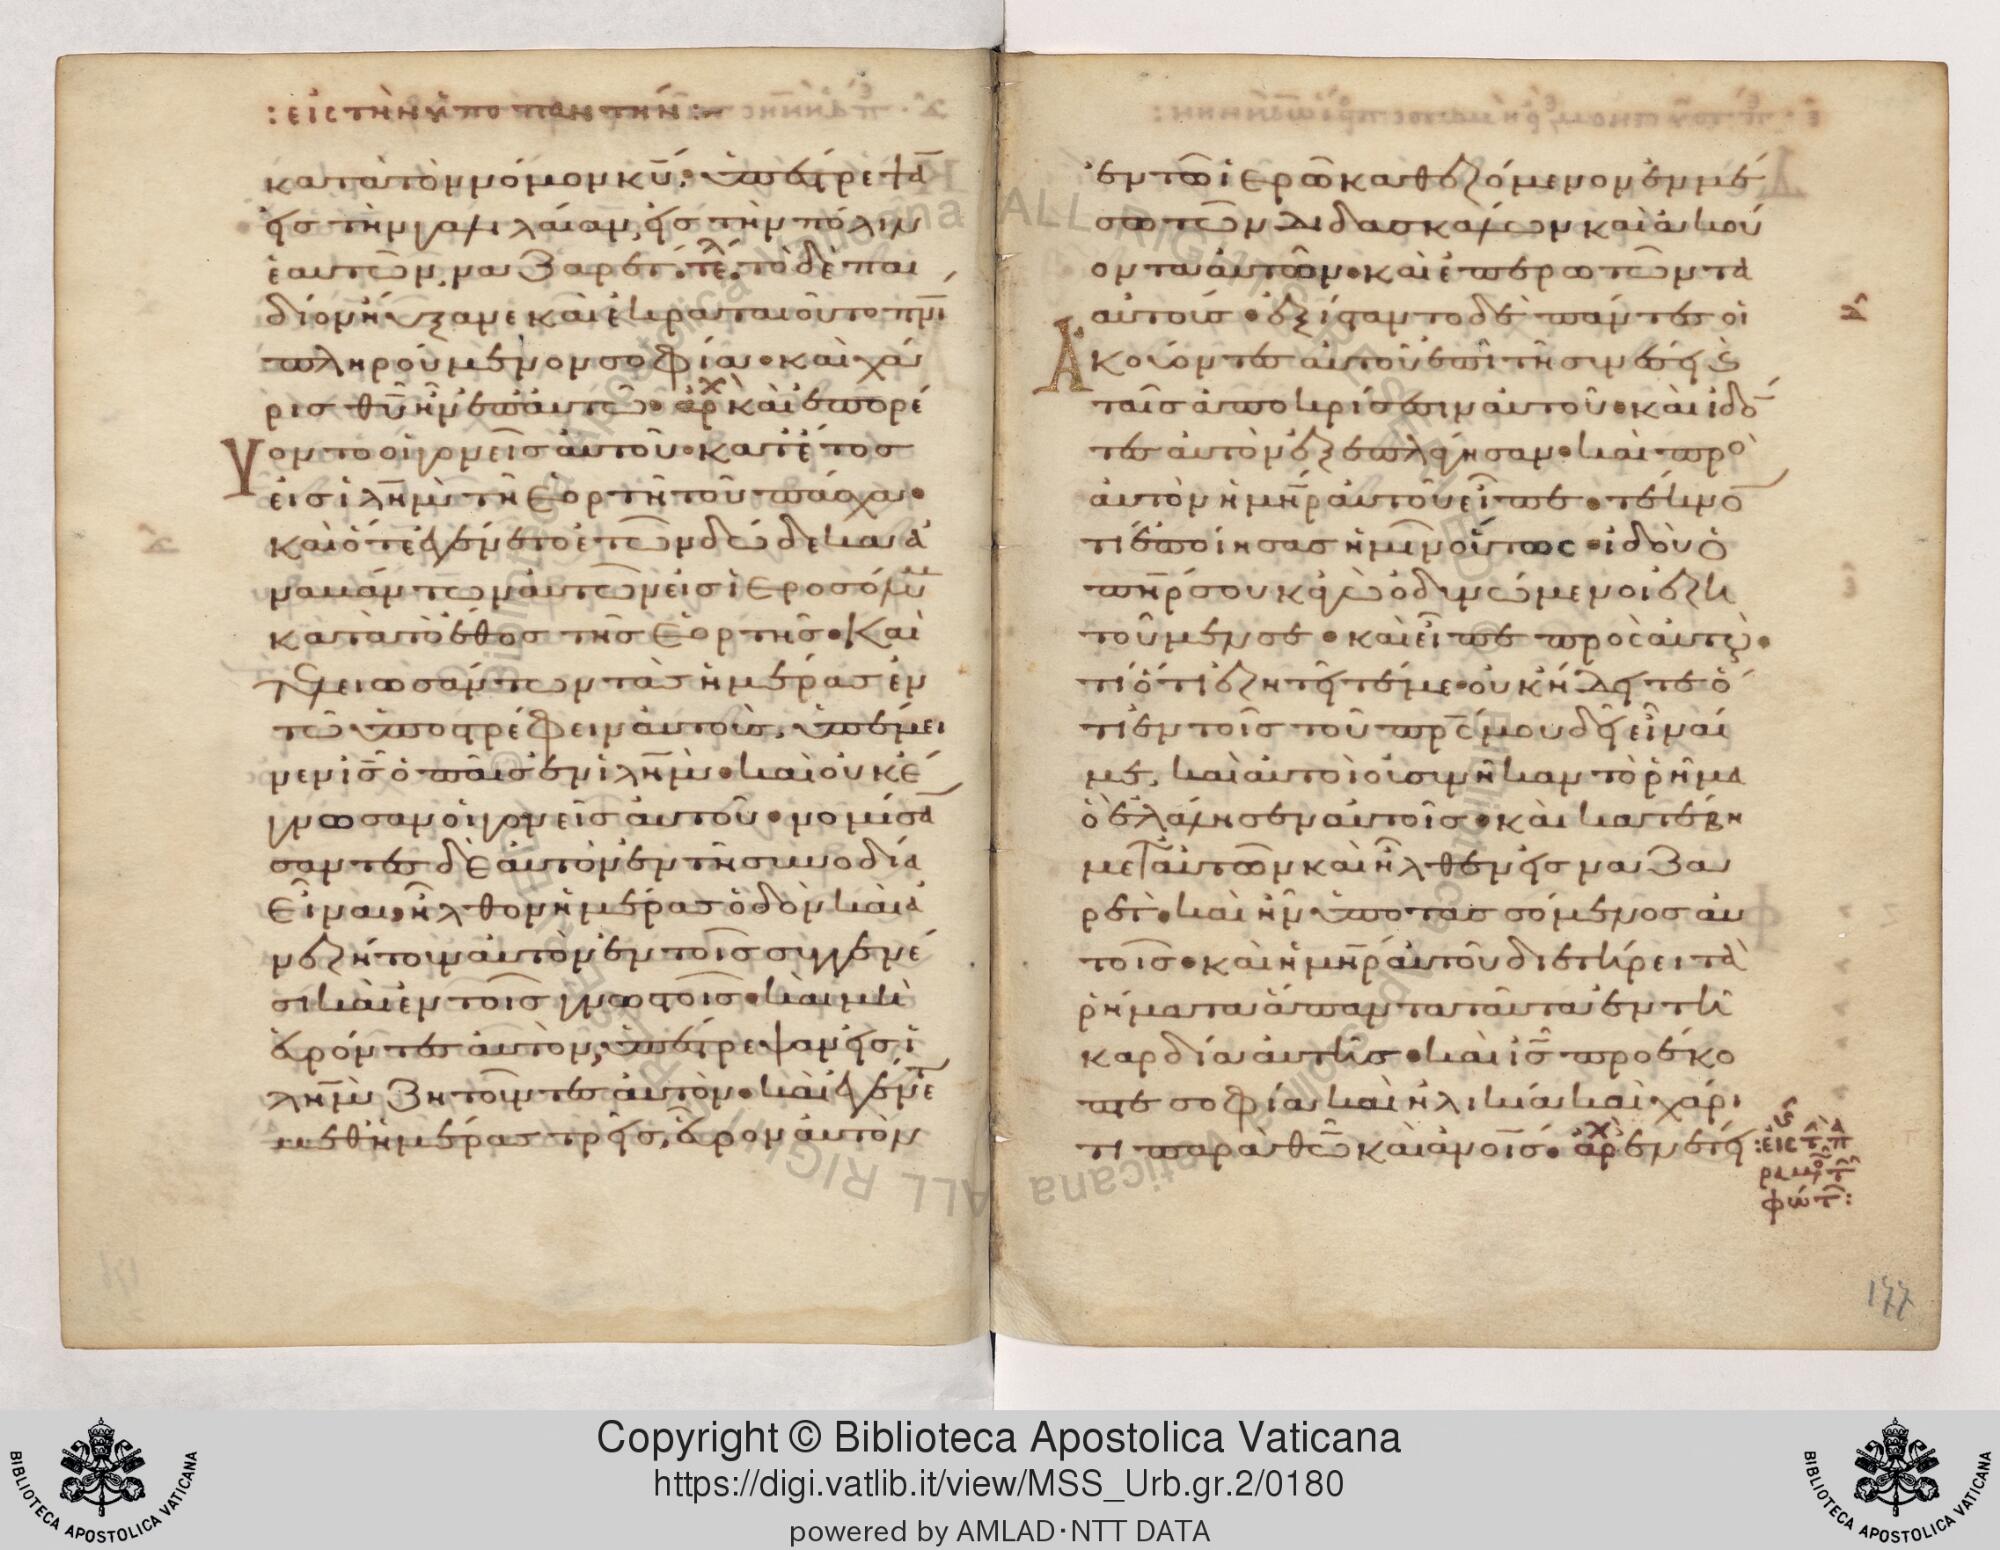 : εἰς τὴν ὑποπαντήν :
κατὰ τὸν νόμον κ̅υ̅· ὑπέστρεψα̅
εἰς τὴν γαλιλαίαν, εἰς τὴν πόλιν
ἑαυτῶν, ναζαρέτ· τε̅λ· τὸ δὲ παι
δίον ηὔξανε καὶ ἐκραταιοῦτο π̅ν̅ι
πληρούμενον σοφίας· καὶ χά
ρις θ̅υ̅ ἦν ἐπ' αὐτῶ· ἀρχ καὶ ἐπορεύ
οντο οἱ γονεῖς αὐτοῦ· κατ' ἔτος
εἰς ἰ̅λ̅η̅μ̅ τῆ ἑορτῆ τοῦ πάσχα·
καὶ ὅτε ἐγένετο ἐτῶν δώδεκα ἀ
ναβάντων αὐτῶν εἰς ἱεροσόλυμα
κατὰ τὸ ἔθος τῆς ἑορτῆς· καὶ
τελειωσάντων τὰς ἡμέρας ἐν
τῶ ὑποστρέφειν αὐτούς, ὑπέμει
νεν ι̅ς̅ ὁ παῖς ἐν ἰ̅λ̅η̅μ̅· καὶ οὐκ ἔ
γνωσαν οἱ γονεῖς αὐτοῦ· νομίσα̅
σαντες δὲ αὐτὸν ἐν τῆ συνοδία
εἶναι, ἦλθον ἡμέρας ὁδὸν καὶ ἀ
νεζήτουν αὐτὸν ἐν τοῖς συγγενέ
σι καὶ ἐν τοῖς γνωστοῖς· καὶ μὴ
εὑρόντες αὐτὸν, ὑπέστρεψαν εἰς ἰ̅
λ̅η̅μ̅ ζητοῦντες αὐτὸν· καὶ ἐγένε̅
μεθ' ἡμέρας τρεῖς, εὗρον αὐτὸν
ἐν τῶ ἱερῶ καθεζόμενον ἐν μέ
σω τῶν διδασκάλων καὶ ἀκού
οντα αὐτῶν· καὶ ἐπερωτῶντα
αὐτούς· ἐξίσταντο δὲ πάντες οἱ
ἀκούοντες αὐτοῦ ἐπὶ τῆ συνέσει καὶ
ταῖς ἀποκρίσεσιν αὐτοῦ· καὶ ἰδό̅
τες αὐτὸν ἐξεπλάγησαν· καὶ πρὸ
αὐτὸν ἡ μ̅η̅ρ̅ αὐτοῦ εἶπε· τέκνο̅
τί ἐποίησας ἡμῖν οὕτως· ἰδοὺ ὁ
π̅η̅ρ̅ σου κἀγὼ ὀδυνώμενοι ἐζη
τοῦμέν σε· καὶ εἶπε πρὸς αὐτού·
τί ὅτι ἐζητεῖτέ με· οὐκ ἤδειτε ὅ
τι ἐν τοῖς τοῦ π̅ρ̅ς̅ μου δεῖ εἶναί
με, καὶ αὐτοὶ οὐ συνῆκαν τὸ ῥῆμα
ὃ ἐλάλησεν αὐτοῖς· καὶ κατέβη
μετ' αὐτῶν καὶ ἦλθεν εἰς ναζα
ρέτ· καὶ ἦν ὑποτασσόμενος αὐ
τοῖς· καὶ ἡ μ̅η̅ρ̅ αὐτοῦ διετήρει τὰ
ῥήματα ἅπαντα ταῦτα ἐν τῆ
καρδία αὐτῆς· καὶ ι̅ς̅ προέκο
πτε σοφία καὶ ἡλικία καὶ χάρι
τι παρὰ θ̅ω̅ καὶ ἀ̅ν̅ο̅ι̅ς̅· ἀρχ ἐν ἔτει
: εἰς τ̅ π̅
ραμο̅ τ̅
φώτ̅ :
177
Copyright © Biblioteca Apostolica Vaticana
https://digi.vatlib.it/view/MSS_Urb.gr.2/0180
powered by AMLAD·NTT DATA
BIBLIOTECA APOSTOLICA VATICANA
BIBLIOTECA APOSTOLICA VATICANA